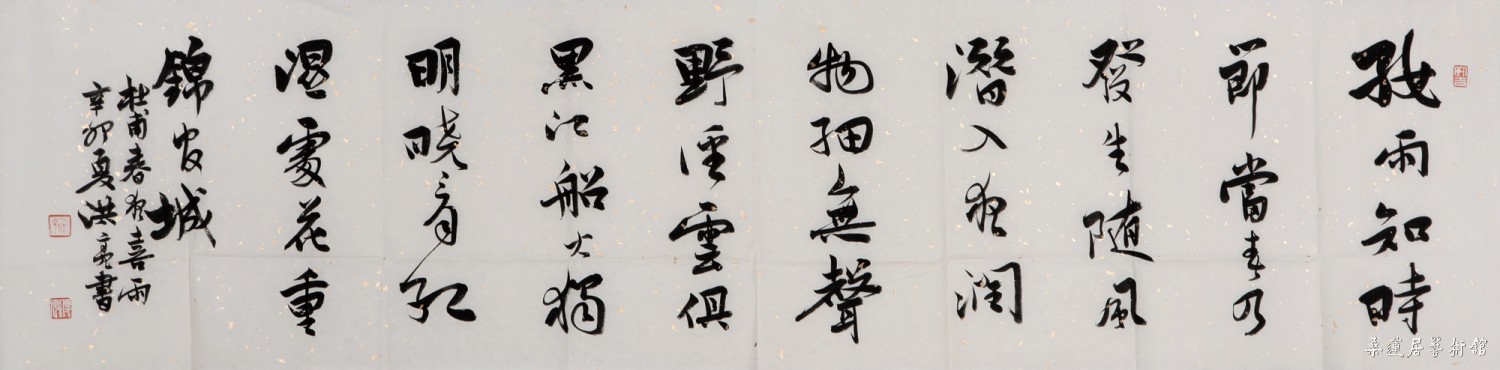 好雨知時
節當春乃
發生随風
潛入夜潤
物細無聲
野徑雲俱
黑江船火獨
明曉看紅
湿處花重
錦官城
杜甫春夜喜雨
辛卯夏洪亮書
桑蓮居藝術館